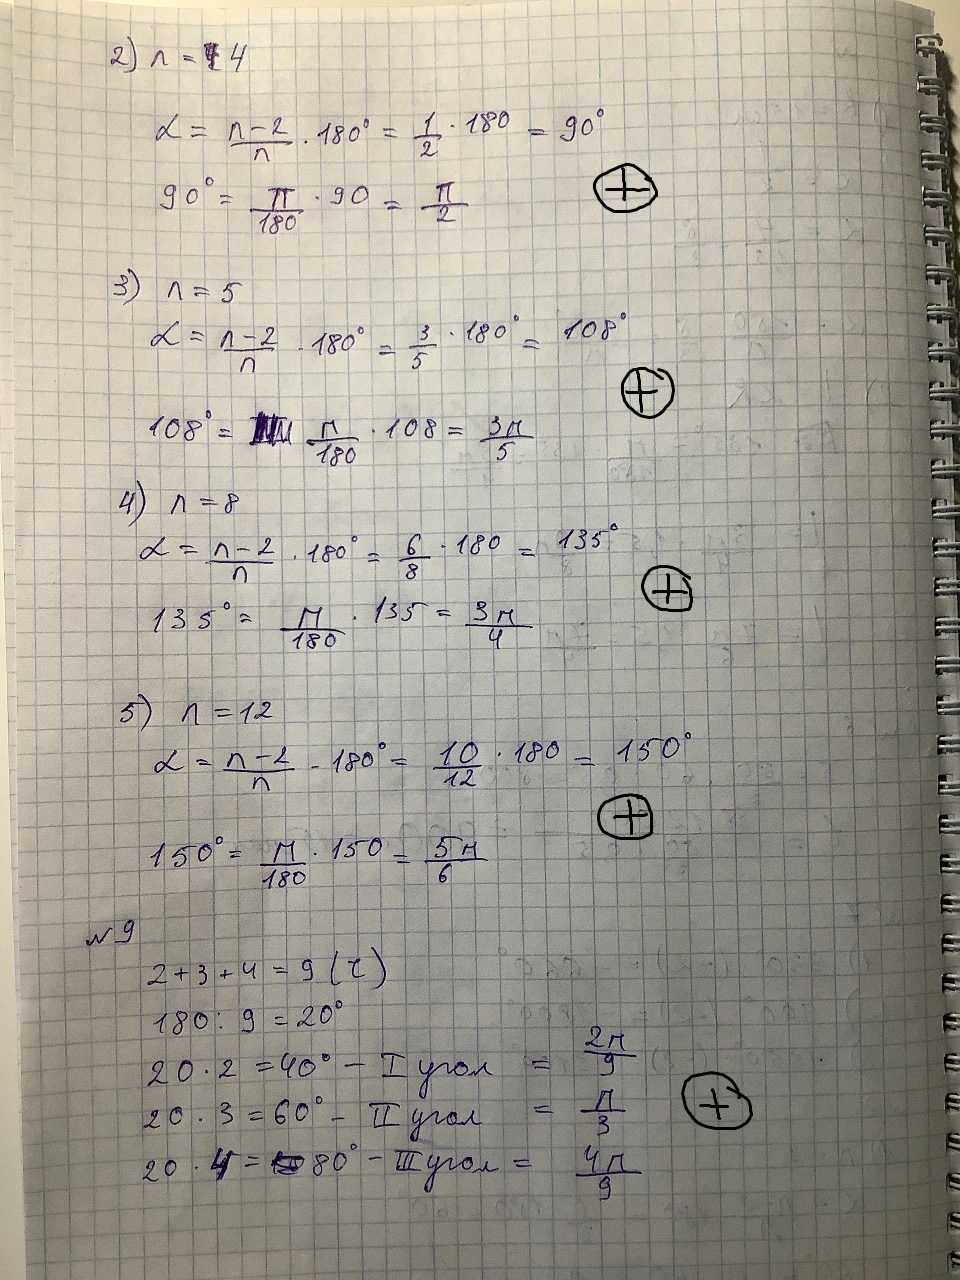 2) n = 4
α = n-2/n · 180° = 1/2 · 180 = 90°
90° = π/180 · 90 = π/2
3) n = 5
α = n-2/n · 180° = 3/5 · 180° = 108°
108° = π/180 · 108 = 3π/5
4) n = 8
α = n-2/n · 180° = 6/8 · 180 = 135°
135° = π/180 · 135 = 3π/4
5) n = 12
α = n-2/n · 180° = 10/12 · 180 = 150°
150° = π/180 · 150 = 5π/6
№9
2+3+4 = 9 (ч)
180 : 9 = 20°
20 · 2 = 40° – I угол = 2π/9
20 · 3 = 60° – II угол = π/3
20 · 4 = 80° – III угол = 4π/9